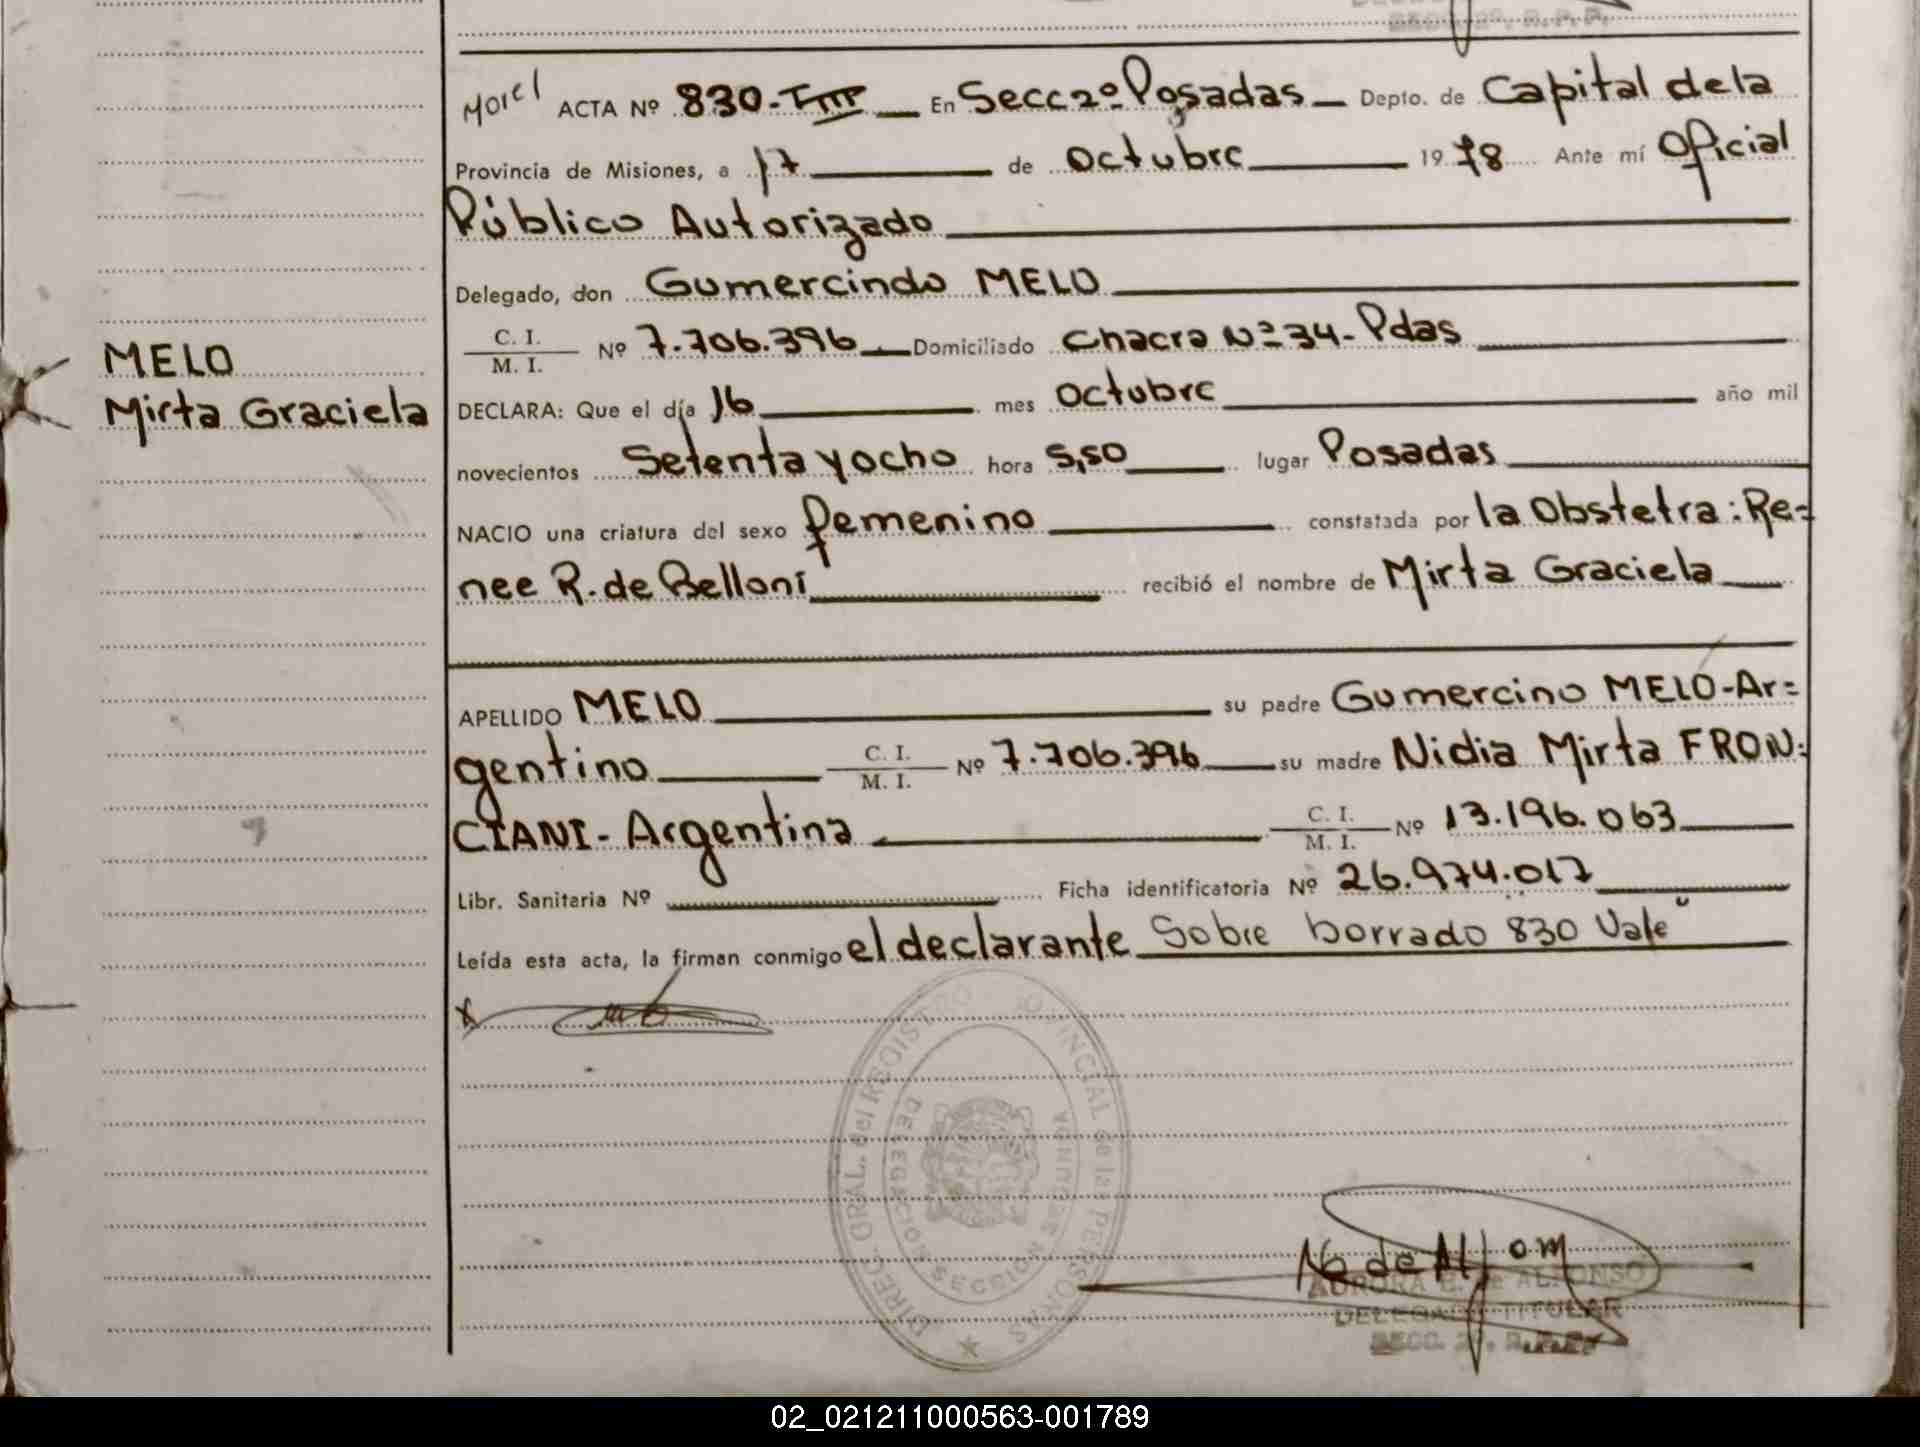 SECC. 2º. R.P.P.
Morel ACTA Nº 830-TMP En Secc 2º Posadas Depto. de Capital dela
Provincia de Misiones, a 17 de Octubre 1978 Ante mí Oficial
Público Autorizado
Delegado, don Gumercindo MELO
C. I.
M. I. Nº 7.706.396 Domiciliado Chacra Nº 34-Pdas
MELO
Mirta Graciela
DECLARA: Que el día 16 mes Octubre año mil
novecientos Setenta y ocho hora 5,50 lugar Posadas
NACIO una criatura del sexo femenino constatada por la Obstetra: Re=
nee R. de Belloni recibió el nombre de Mirta Graciela
APELLIDO MELO su padre Gumercino MELO-Ar=
gentino C. I. M. I. Nº 7.706.396 su madre Nidia Mirta FRON=
CIANI- Argentina C. I. M. I. Nº 13.196.063
Libr. Sanitaria Nº Ficha identificatoria Nº 26.974.017
Leída esta acta, la firman conmigo el declarante Sobre borrado 830 Vale
DIREC. GRAL. del REGISTRO PROVINCIAL de las PERSONAS
DELEGACION SECCION SEGUNDA
AURORA E. de ALFONSO
DELEGADA TITULAR
SECC. 2º. R.P.P.
02_021211000563-001789